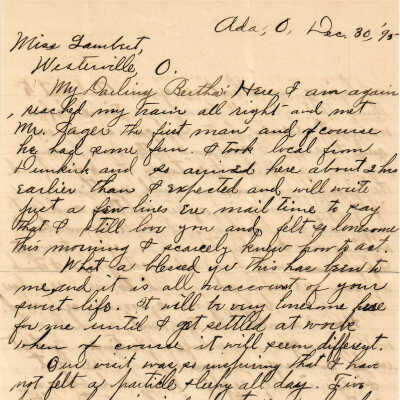 Ada, O, Dec. 30, '95
Miss Lambert,
Westerville, O.
My Darling Bertha: Here I am again
, reached my train all right and met
Mr. Jager the first man and of course
he had some fun. I took local from
Dunkirk and so arrived here about 2 hrs
earlier than I expected and will write
just a few lines ere mail time to say
that I still love you and felt so lonesome
this morning I scarcely knew how to act.
What a blessed yr this has been to
me and it is all on account of your
sweet life. It will be very lonesome here
for me until I get settled at work
when of course it will seem different.
Our visit was so inspiring that I have
not felt a particle sleepy all day. Five